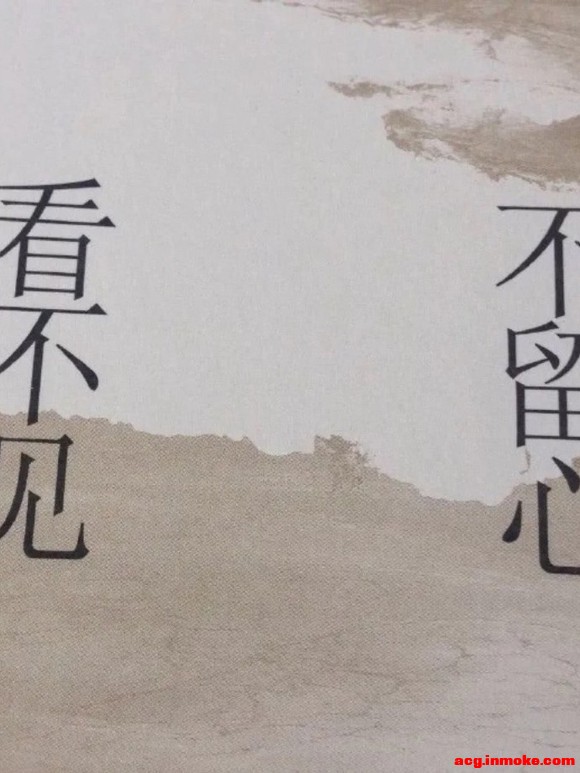 不留心
看不见
acg.inmoke.com